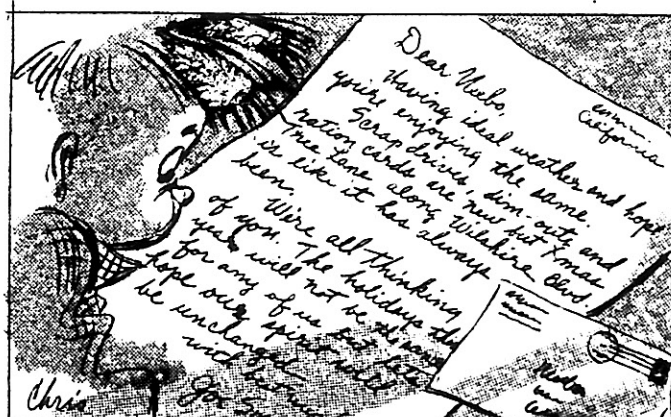 Dear Neebo,
California
Having ideal weather and hope
you're enjoying the same.
Scrap drives, dim-outs, and
ration cards are new but Xmas
Tree Lane along Wilshire Blvd.
is like it has always
been.
We're all thinking
of you. The holidays this
year will not be the same
for any of us but let's
hope our spirit will
be unchanged
with
Joe
Chris